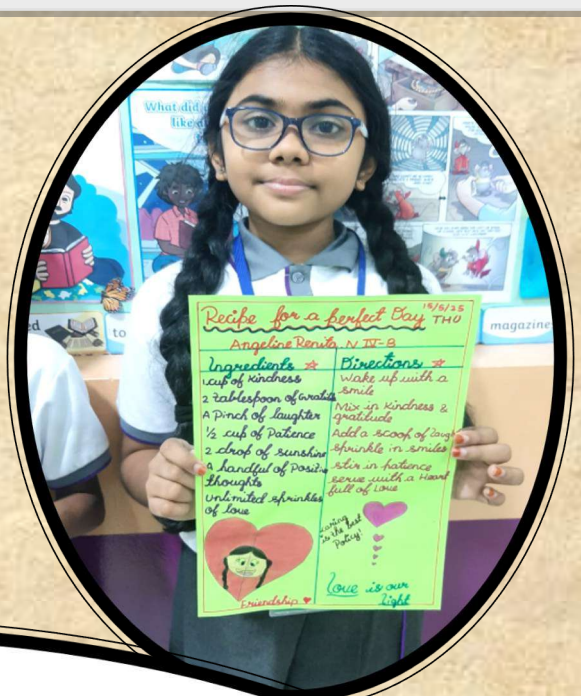 What did
like
magazine
to
Recipe for a perfect Day
15/5/25
THU
Angeline Renita. N IV-B
Ingredients
1 cup of kindness
2 Tablespoon of Gratit
A Pinch of laughter
½ cup of Patience
2 drop of sunshine
A handful of Positive
thoughts
unlimited sprinkles
of love
Friendship
Directions
Wake up with a
smile
Mix in Kindness &
gratitude
Add a scoop of laugh
sprinkle in smiles
stir in patience
serve with a Heart
full of Love
caring
is the best
Policy!
Love is our
Light